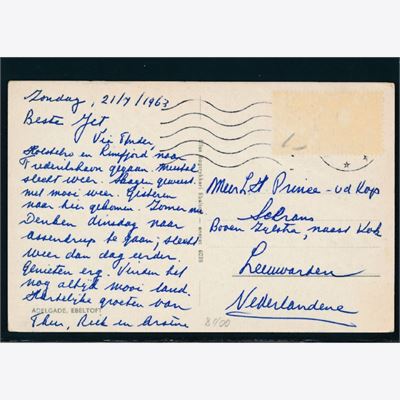 Zondag, 21/7/1963
Beste Jet
Via Odder,
Holstebro en Limfjord naar
Frederikshavn gegaan. Meestal
slecht weer. Skagen geweest
met mooi weer. Gisteren
naar hier gekomen. Zomer
Denken dinsdag naar
Assendrup te gaan; slecht
weer dan dag eerder.
Genieten erg. Vinden het
nog altijd mooi land.
Hartelijke groeten van
Theo, Riek en
ADELGADE, EBELTOFT
Prince - vd Kop
Boven Zylstra, naast Kok
Leeuwarden
Nederlandene